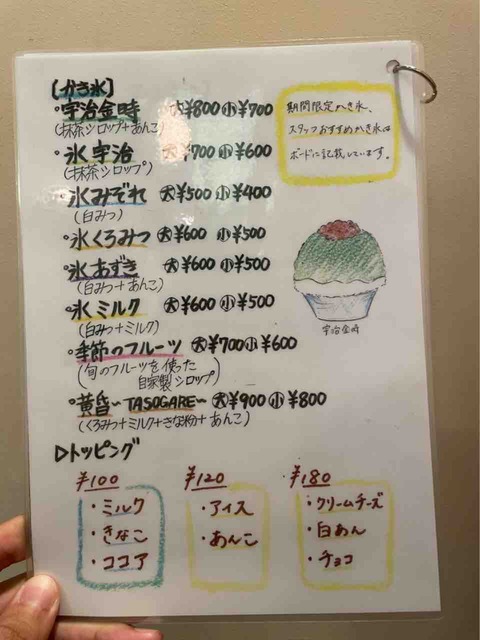 【かき氷】
・宇治金時 大¥800 小¥700
(抹茶シロップ+あんこ)
・氷宇治 大¥700 小¥600
(抹茶シロップ)
・氷みぞれ 大¥500 小¥400
(白みつ)
・氷くろみつ 大¥600 小¥500
・氷あずき 大¥600 小¥500
(白みつ+あんこ)
・氷ミルク 大¥600 小¥500
(白みつ+ミルク)
・季節のフルーツ 大¥700 小¥600
(旬のフルーツを使った
自家製シロップ)
・黄昏~TASOGARE~ 大¥900 小¥800
(くろみつ+ミルク+きな粉+あんこ)
期間限定かき氷、
スタッフおすすめかき氷は
ボードに記載しています。
宇治金時
▷トッピング
¥100
・ミルク
・きなこ
・ココア
¥120
・アイス
・あんこ
¥180
・クリームチーズ
・白あん
・チョコ